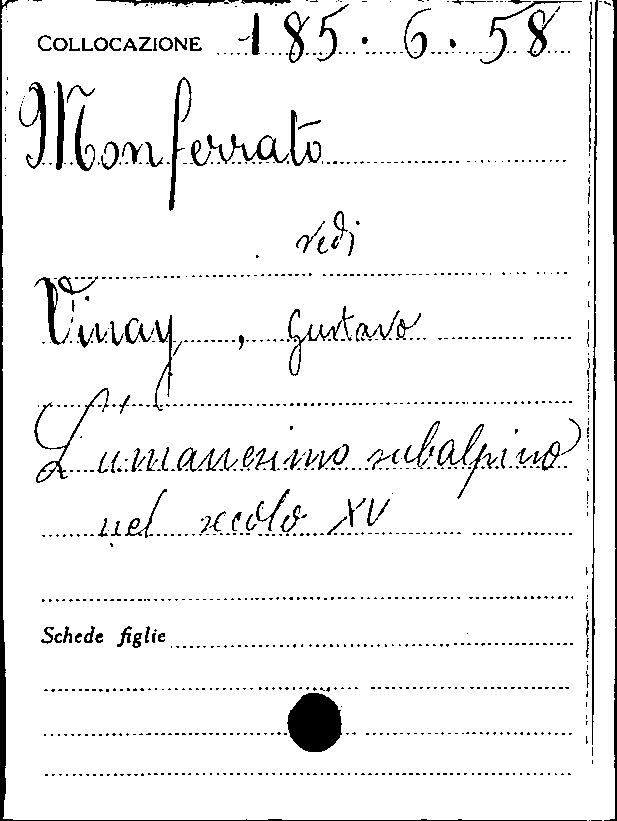 COLLOCAZIONE 185.6.58
Monferrato
vedi
Vinay, Gustavo
L'umanesimo subalpino
nel secolo XV
Schede figlie